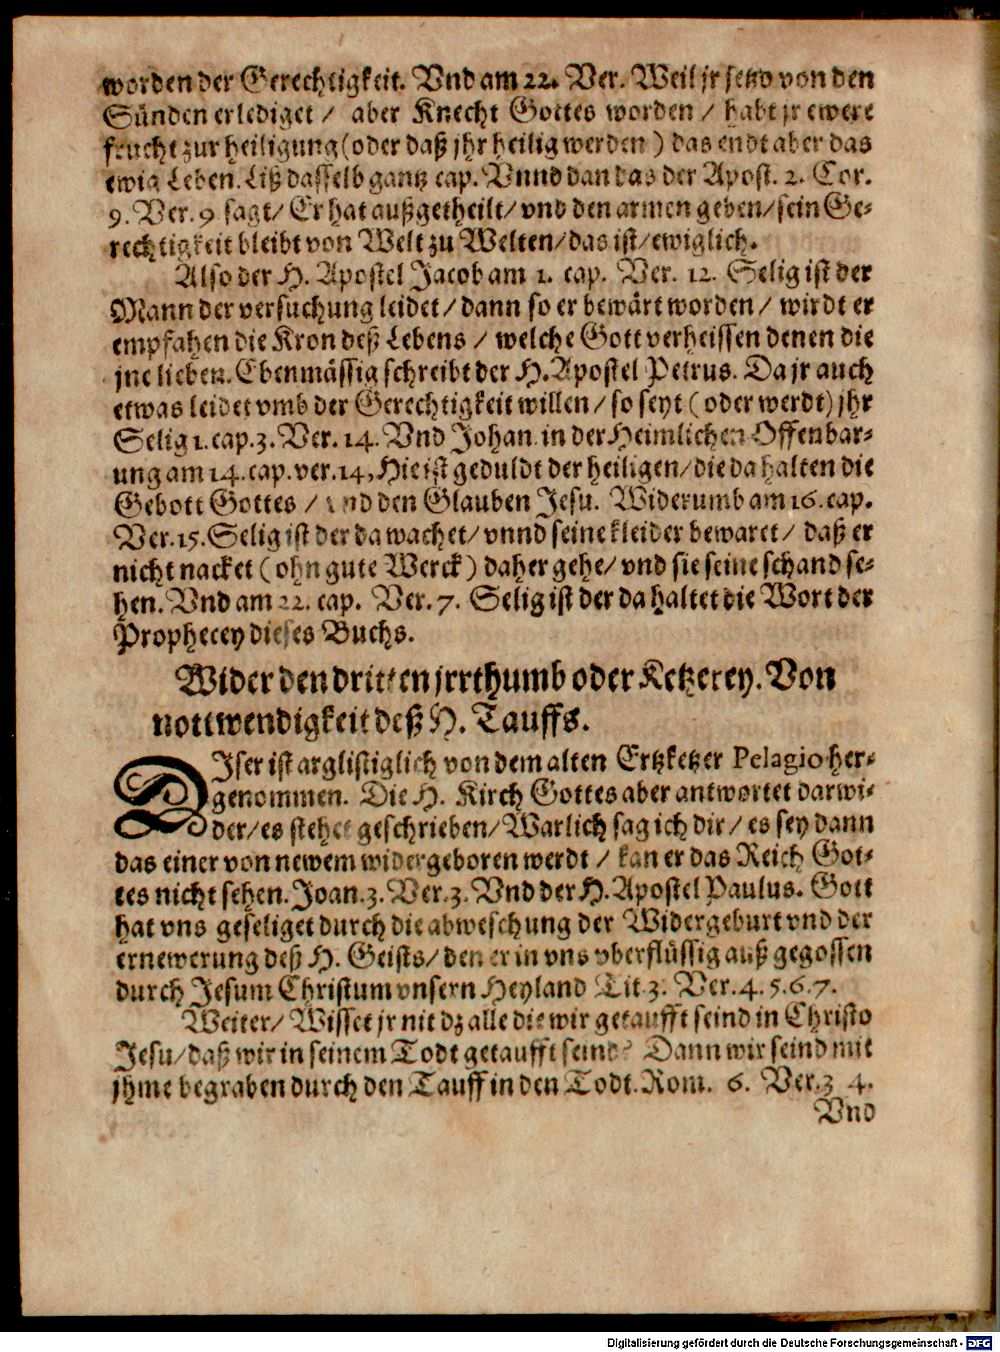 worden der Gerechtigkeit. Vnd am 22. Ver. Weil jr jetzo von den
Sünden erlediget / aber Knecht Gottes worden / habt jr ewere
frucht zur heiligung (oder daß jhr heilig werden ) das endt aber das
ewig Leben. Liß dasselb gantz cap. Vnnd dan das der Apost. 2. Cor.
9. Ver. 9 sagt/ Er hat außgetheilt/ vnd den armen geben/ sein Ge-
rechtigkeit bleibt von Welt zu Welten/ das ist/ ewiglich.
Also der H. Apostel Jacob am 1. cap. Ver. 12. Selig ist der
Mann der versuchung leidet / dann so er bewärt worden / wirdt er
empfahen die Kron deß Lebens / welche Gott verheissen denen die
jne lieben. Ebenmässig schreibt der H. Apostel Petrus. Da jr auch
etwas leidet vmb der Gerechtigkeit willen / so seyt ( oder werdt) jhr
Selig 1. cap. 3. Ver. 14. Vnd Johan. in der Heimlichen Offenbar-
ung am 14. cap. ver. 14, Hie ist geduldt der heiligen/ die da halten die
Gebott Gottes / vnd den Glauben Jesu. Widerumb am 16. cap.
Ver. 15. Selig ist der da wachet/ vnnd seine kleider bewaret / daß er
nicht nacket ( ohn gute Werck ) daher gehe/ vnd sie seine schand se-
hen. Vnd am 22. cap. Ver. 7. Selig ist der da haltet die Wort der
Prophecey dieses Buchs.
Wider den dritten jrrthumb oder Ketzerey. Von
nottwendigkeit deß H. Tauffs.
DIser ist arglistiglich von dem alten Ertzketzer Pelagio her-
genommen. Die H. Kirch Gottes aber antwortet darwi-
der/ es stehet geschrieben/ Warlich sag ich dir / es sey dann
das einer von newem widergeboren werdt / kan er das Reich Got-
tes nicht sehen. Joan. 3. Ver. 3. Vnd der H. Apostel Paulus. Gott
hat vns geseliget durch die abweschung der Widergeburt vnd der
ernewerung deß H. Geists/ den er in vns vberflüssig auß gegossen
durch Jesum Christum vnsern Heyland Tit. 3. Ver. 4. 5. 6. 7.
Weiter/ Wisset jr nit dz alle die wir getaufft seind in Christo
Jesu/ daß wir in seinem Todt getaufft seind? Dann wir seind mit
jhme begraben durch den Tauff in den Todt. Rom. 6. Ver. 3 4.
Vnd
Digitalisierung gefördert durch die Deutsche Forschungsgemeinschaft - DFG